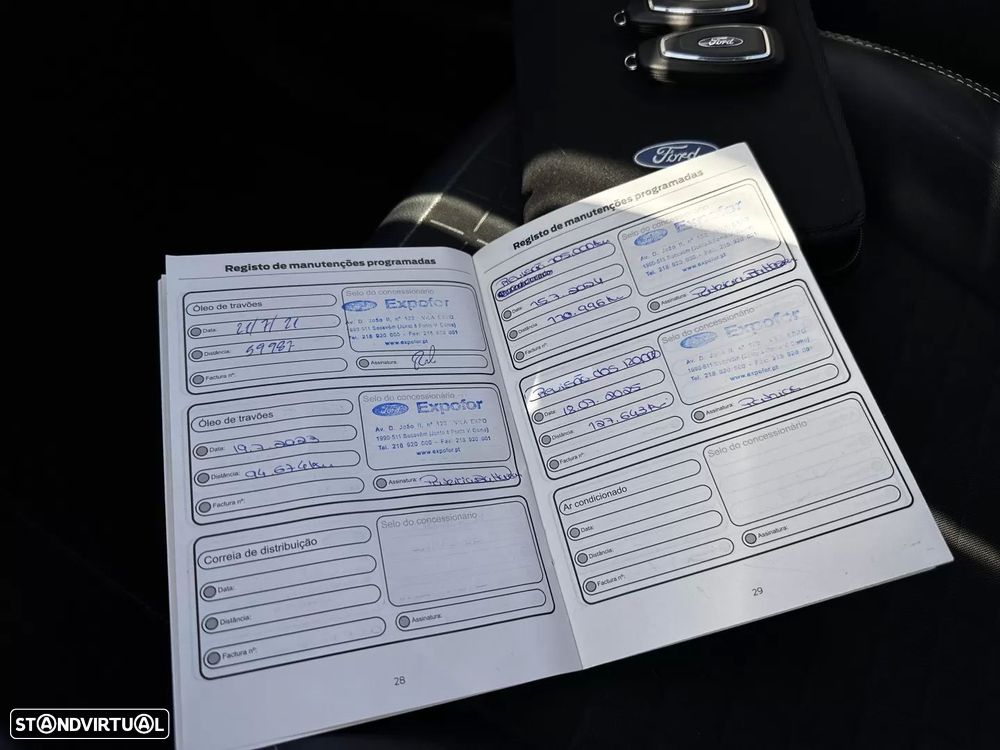 Ford
Ford
Registo de manutenções programadas
Óleo de travões
Data: 21/7/21
Distância: 59987
Factura nº:
Selo do concessionário
Ford Expofor
Av. D. João II, nº 122 - VILA EXPO
1990-511 Sacavém (Junto à Ponte V. Gama)
Tel. 218 920 000 - Fax: 218 920 001
www.expofor.pt
Assinatura:
Óleo de travões
Data: 19.7.2023
Distância: 94.674km
Factura nº:
Selo do concessionário
Ford Expofor
Av. D. João II, nº 122 - VILA EXPO
1990-511 Sacavém (Junto à Ponte V. Gama)
Tel. 218 920 000 - Fax: 218 920 001
www.expofor.pt
Assinatura:
Correia de distribuição
Data:
Distância:
Factura nº:
Selo do concessionário
Assinatura:
28
Registo de manutenções programadas
Revisão 105.000km
Data: 15.7.2024
Distância: 110.996km
Factura nº:
Selo do concessionário
Ford Expofor
Av. D. João II, nº 122
1990-511 Sacavém (Junto à Ponte V. Gama)
Tel. 218 920 000 - Fax: 218 920 001
www.expofor.pt
Assinatura:
Revisão dos 120000
Data: 18.07.2025
Distância: 127.643km
Factura nº:
Selo do concessionário
Ford Expofor
Av. D. João II, nº 122
1990-511 Sacavém (Junto à Ponte V. Gama)
Tel. 218 920 000 - Fax: 218 920 001
www.expofor.pt
Assinatura:
Ar condicionado
Data:
Distância:
Factura nº:
Selo do concessionário
Assinatura:
29
STANDVIRTUAL